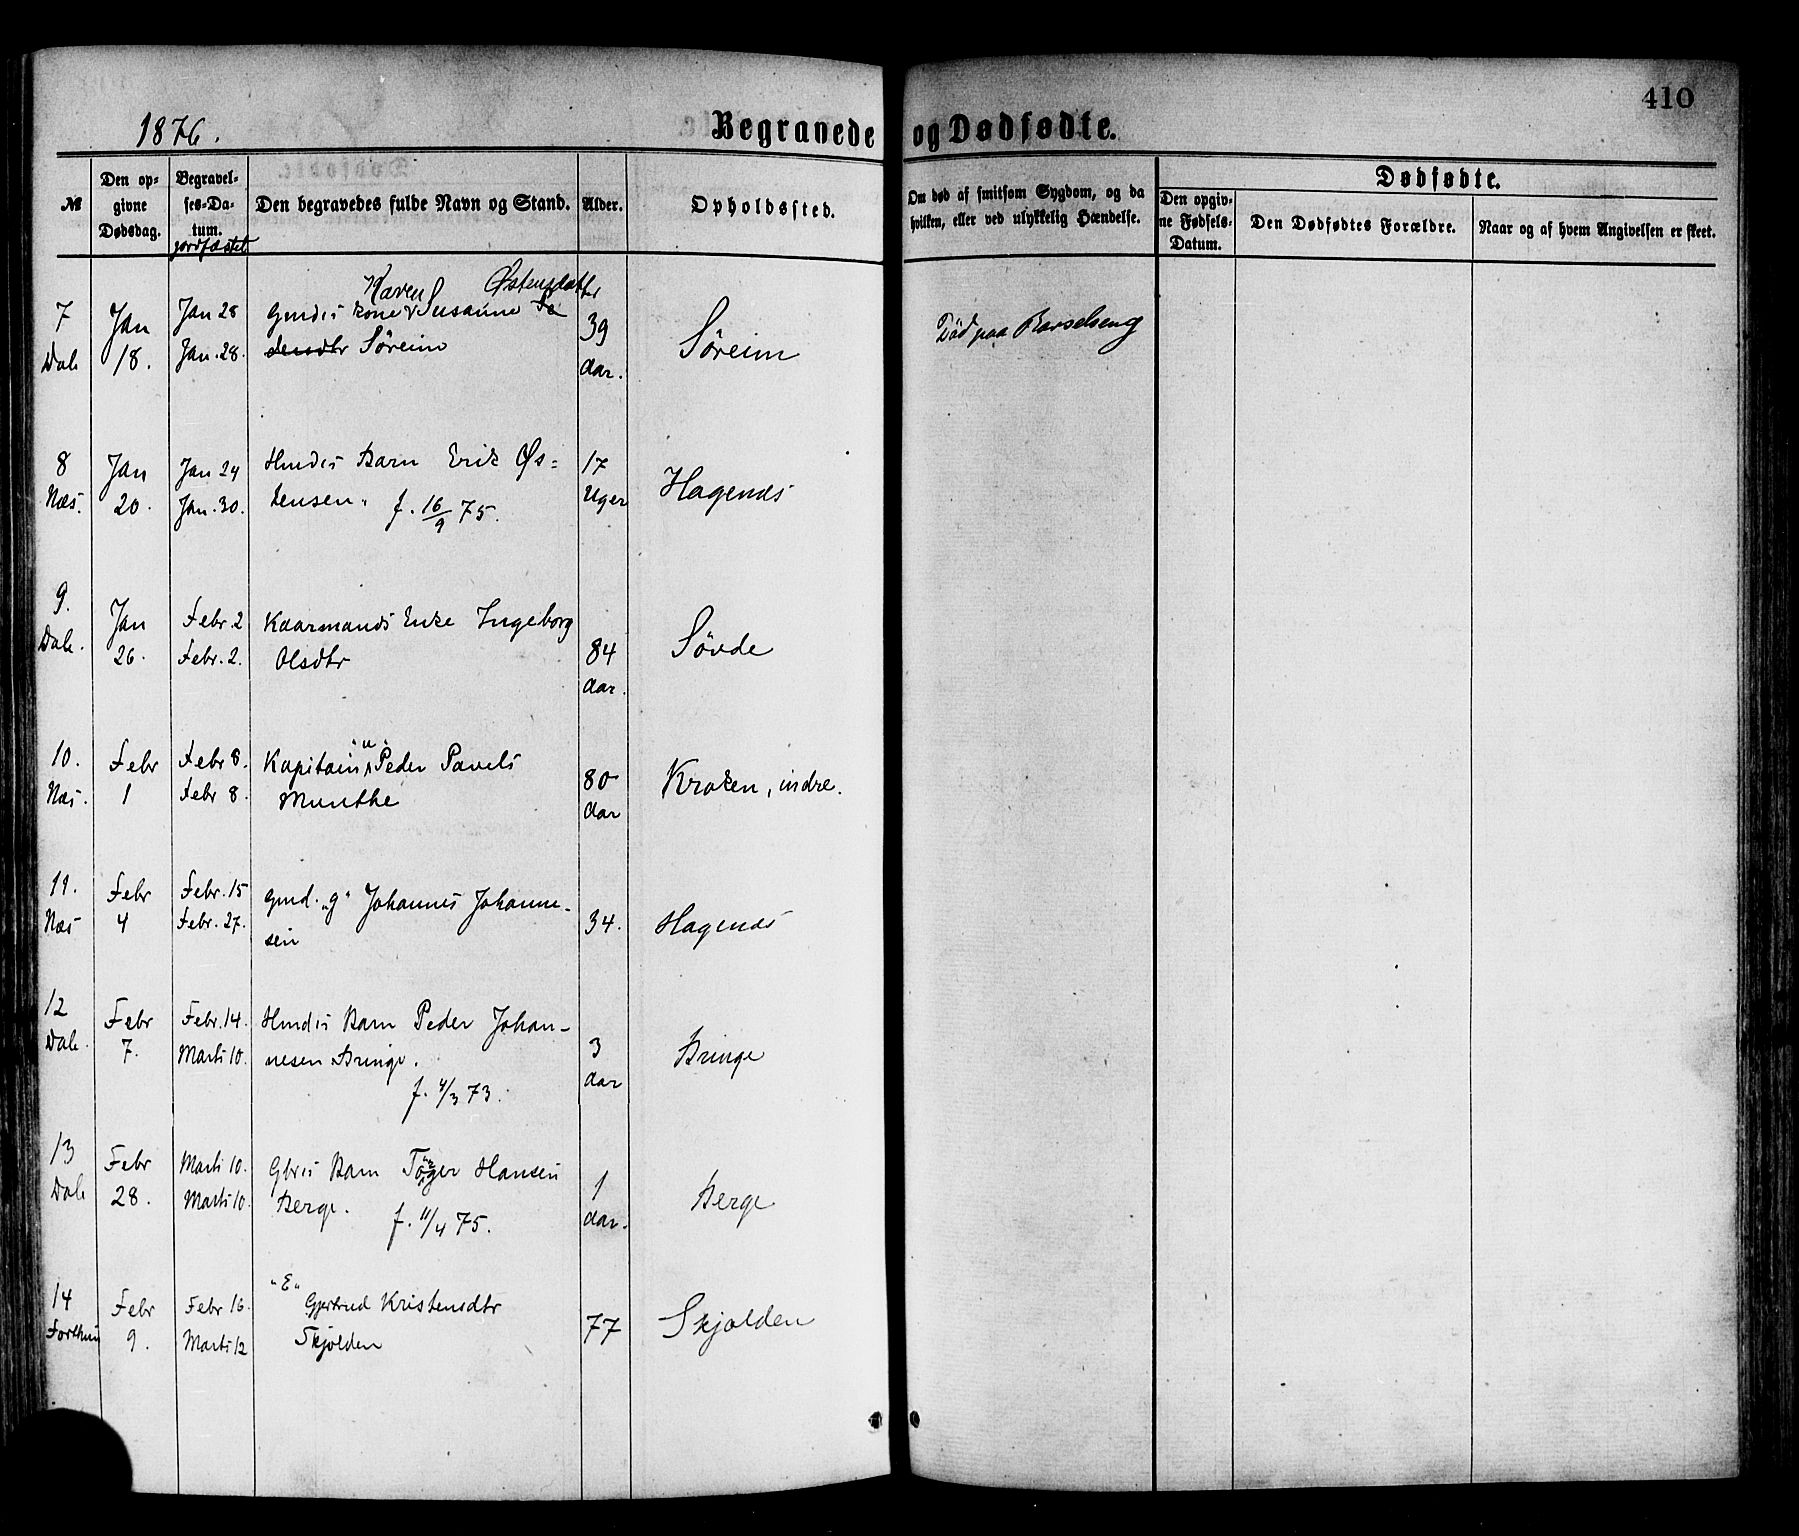 410
1876.
Begravede og Dødfødte.
№
Den opgivne Dødsdag.
Begravelses-Datum. jordfæstet
Den begravedes fulde Navn og Stand.
Alder.
Opholdssted.
Om død af smitsom Sygdom, og da hvilken, eller ved ulykkelig Hændelse.
Dødfødte.
Den opgivne Fødsels-Datum.
Den Dødfødtes Forældre.
Naar og af hvem Angivelsen er skeet.
Karen Østensdatter
7 Jan Jan 28 Gmds kone Susanne 39 Søreim Død paa Barselseng
Dale 18. Jan. 28. Søreim Aar.
8 Jan Jan 24 Hmds Barn Erik Øs= 17 Hagenæs
Næs. 20. Jan. 30. tensen. f. 16/9 75. Uger
9. Jan Febr. 2 Kaarmands Enke Ingeborg 84 Søvde
Dale. 26. Febr. 2. Olsdtr Aar.
10. Febr Febr 8. Kapitain "u" Peder Pavels 80 Kroken, indre.
Næs. 1 Febr 8. Munthe Aar
11. Febr Febr. 15 Gmd. "g" Johannes Johanne- 34. Hagenæs
Næs 4 Febr. 27. sen
12 Febr Febr. 14. Hmds Barn Peder Johan- 3 Bringe
Dale. 7. Marts 10. nesen Bringe. Aar
f. 4/3 73.
13 Febr Marts 10. Gbrs Barn Tøger Hansen 1 Berge
Dale 28. Marts 10. Berge. f. 11/4 75. Aar.
14 Febr Febr 16. "E" Gjertrud Kristensdtr 77 Skjolden
Forthun 9. Marts 12 Skjolden